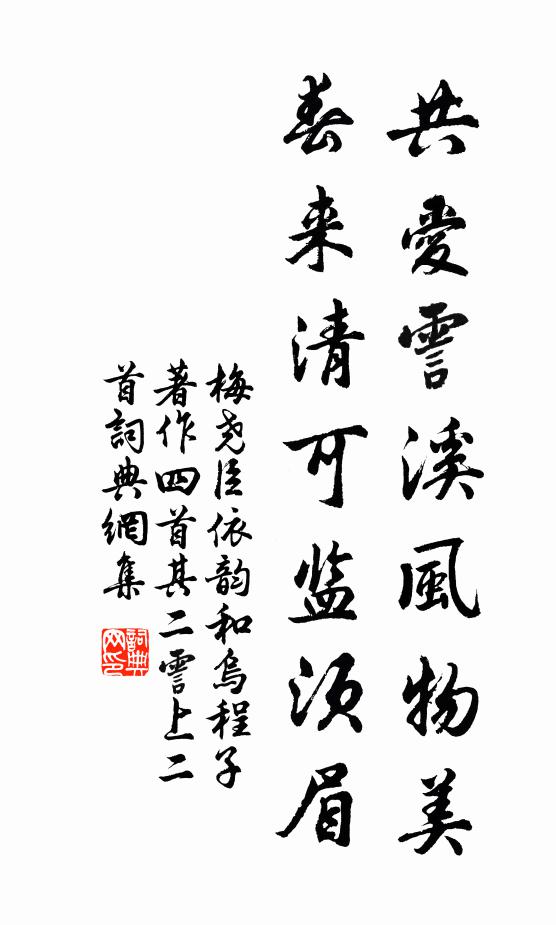 共愛霅溪風物美
春来清可监须眉
梅尧臣依韵和烏程子
著作四首其二霅上二
首詞典網集
詞典网印